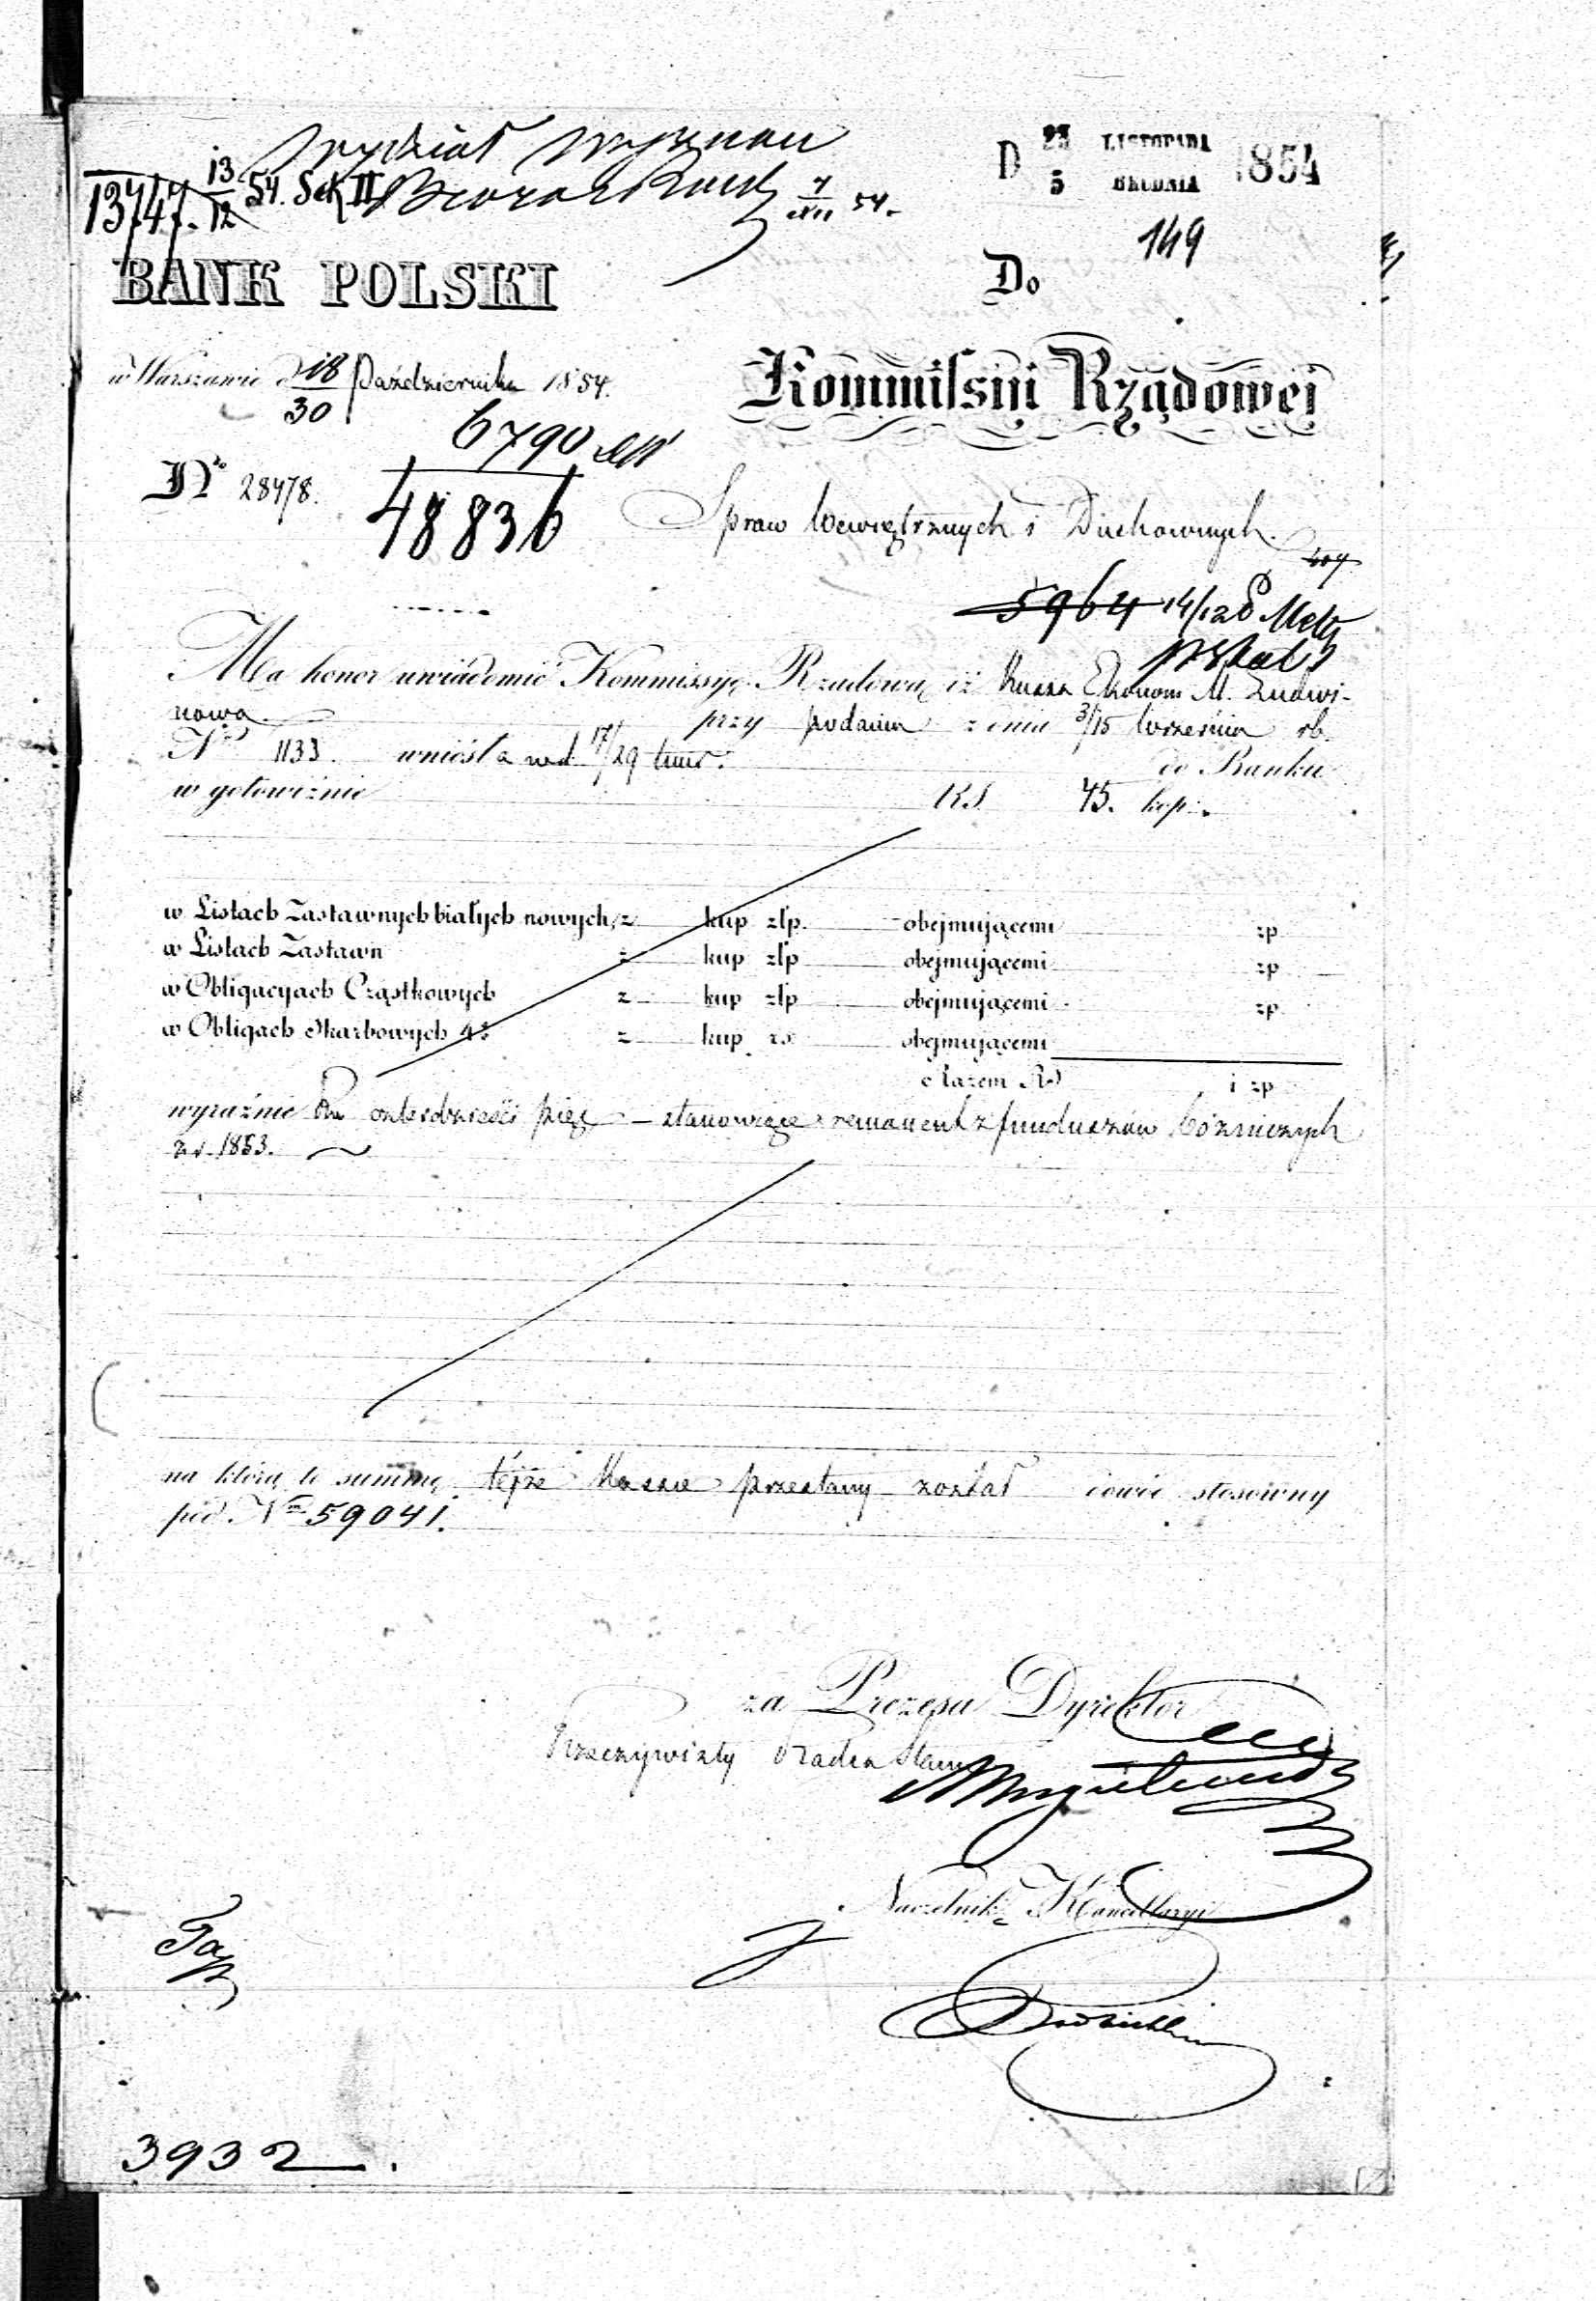 Wydział Wyznań
13747. 13/12 54. Sek II 7/XII 54.
D 23 LISTOPADA 5 GRUDNIA 1854
149
BANK POLSKI
Do
w Warszawie d 18/30 Października 1854.
Kommissyi Rządowej
6790
No 28478.
48836
Spraw Wewnętrznych i Duchownych.
5964 14/12
Ma honor uwiadomić Kommissyę Rządową iż Kassa Ekonom M. Ludwi-
nowa przy podaniu z dnia 3/15 Września rb.
No 1133. wniosła pod 17/29 do Banku
w gotowiźnie RS. 45. kop.
w Listach Zastawnych białych nowych z kup złp. obejmującemi zp
w Listach Zastawn z kup złp obejmującemi zp
w Obligacyach Cząstkowych z kup złp obejmującemi zp
w Obligach Skarbowych 4% z kup rs obejmującemi
Razem RS i zp
wyraźnie Rs czterdzieści pięć – stanowiące remanent z funduszów bóżniczych
z r. 1853.
na którą to summę tejże Kassie przesłany został dowód stosowny
pod No 59041.
za Prezesa Dyrektor
Rzeczywisty Radca Stanu
Naczelnik Kancellaryi
3932